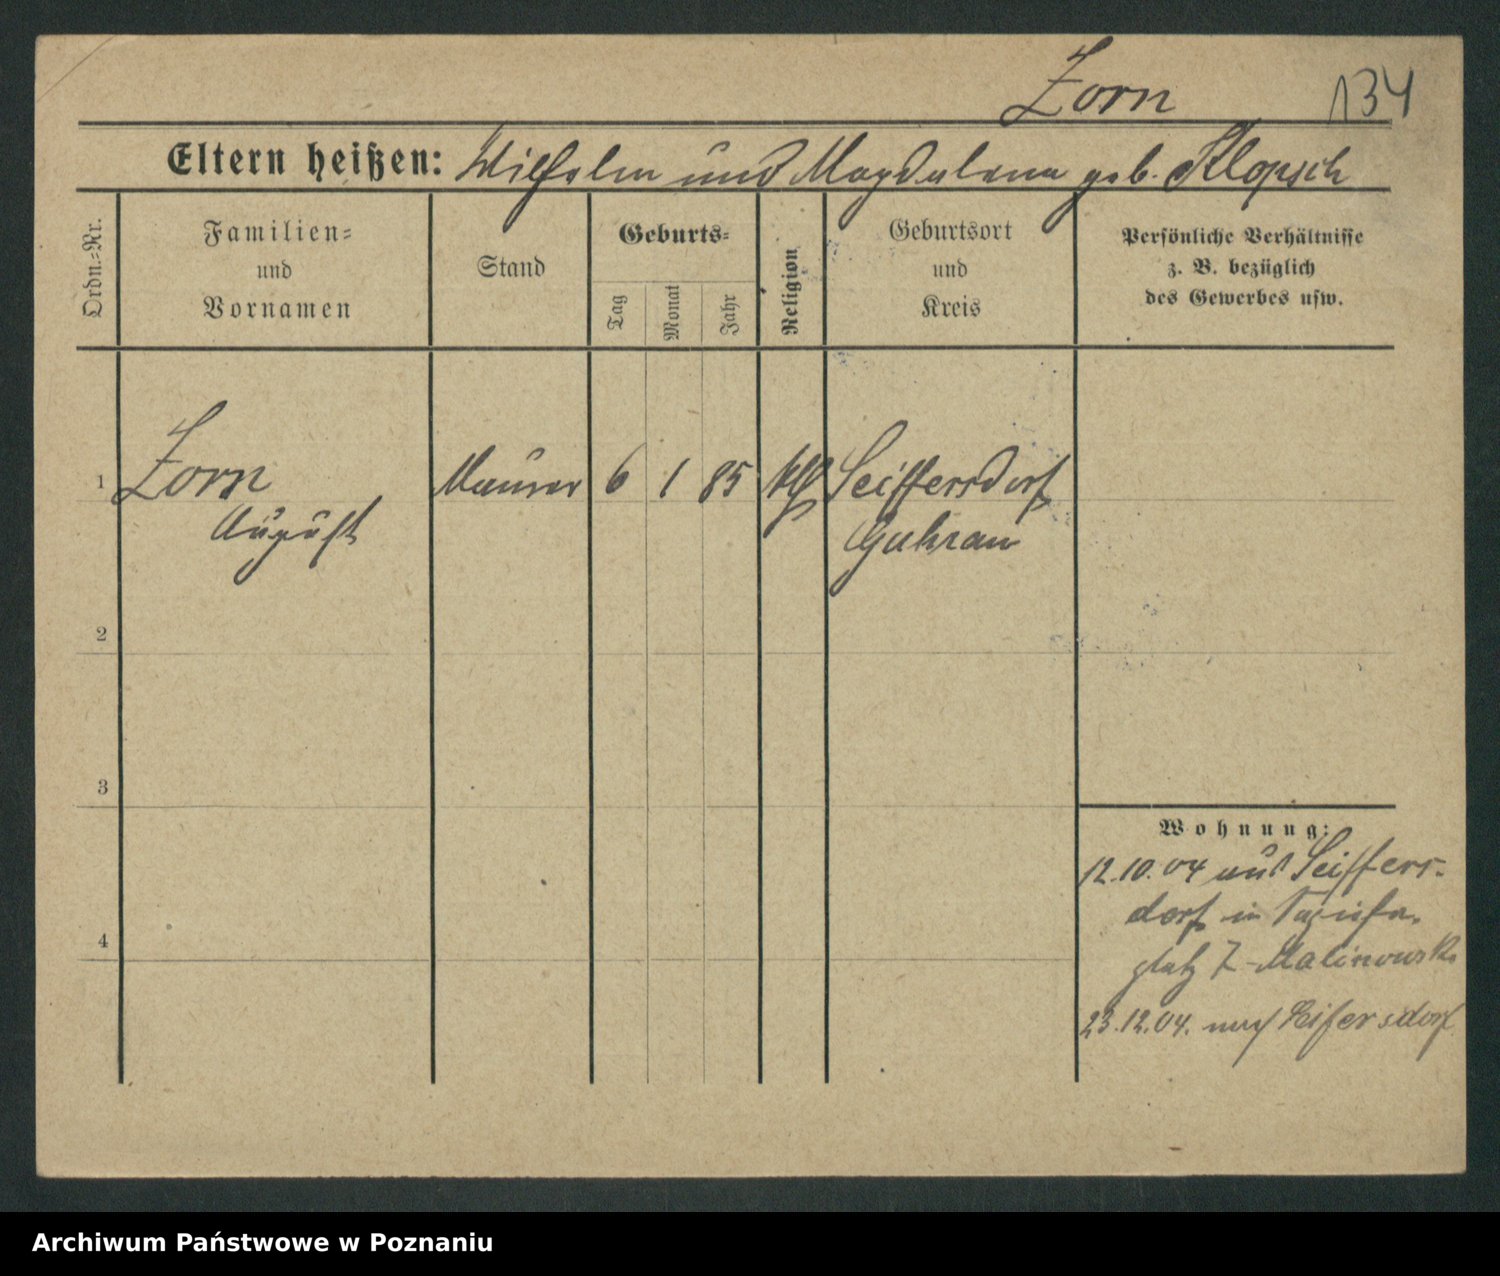 Zorn 134
Eltern heißen: Wilhelm und Magdalena geb. Klopsch
Ordn.-Nr.
Familien-
und
Vornamen
Stand
Geburts-
Tag
Monat
Jahr
Religion
Geburtsort
und
Kreis
Persönliche Verhältnisse
z. B. bezüglich
des Gewerbes usw.
1 Zorn Maurer 6 1 85 kth Seiffersdorf
August Guhrau
2
3
4
Wohnung:
12.10.04 aus Seiffers-
dorf in
platz 7 - Malinowski
23.12.04. nach Seifersdorf
Archiwum Państwowe w Poznaniu